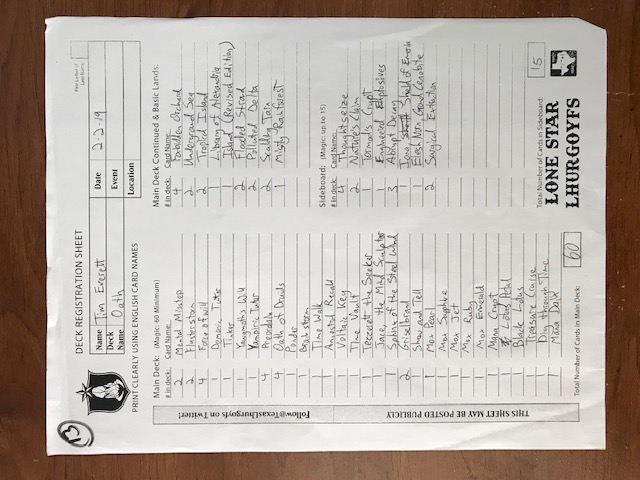 13
DECK REGISTRATION SHEET
First Letter of
Last Name
Name Tim Everett
Date 2-2-19
Deck Name Oath
Event
Location
PRINT CLEARLY USING ENGLISH CARD NAMES
Follow @TexasLhurgoyfs on Twitter!
THIS SHEET MAY BE POSTED PUBLICLY
Main Deck: (Magic: 60 Minimum)
# in deck: Card Name:
2 Mental Misstep
2 Flusterstorm
4 Force of Will
1 Demonic Tutor
1 Tinker
1 Yawgmoth's Will
1 Vampiric Tutor
4 Preordain
4 Oath of Druids
1 Ponder
1 Brainstorm
1 Time Walk
1 Ancestral Recall
1 Voltaic Key
1 Time Vault
1 Tezzeret the Seeker
1 Jace, the Mind Sculptor
1 Sphinx of the Steel Wind
2 Griselbrand
1 Show and Tell
1 Mox Pearl
1 Mox Sapphire
1 Mox Jet
1 Mox Ruby
1 Mox Emerald
1 Mana Crypt
1 Lotus Petal
1 Black Lotus
1 Treasure Cruise
1 Dig through Time
1 Mana Drain
Total Number of Cards in Main Deck: 60
Main Deck Continued & Basic Lands:
# in deck: Card Name:
4 Forbidden Orchard
2 Underground Sea
2 Tropical Island
1 Library of Alexandria
1 Island (Revised Edition)
2 Flooded Strand
2 Polluted Delta
2 Scalding Tarn
1 Misty Rainforest
Sideboard: (Magic: up to 15)
# in deck: Card Name:
4 Thoughtseize
2 Nature's Claim
1 Tormod's Crypt
1 Engineered Explosives
3 Abrupt Decay
1 Iona, Shield of Emeria
1 Elesh Norn, Grand Cenobite
2 Surgical Extraction
Total Number of Cards in Sideboard: 15
LONE STAR
LHURGOYFS